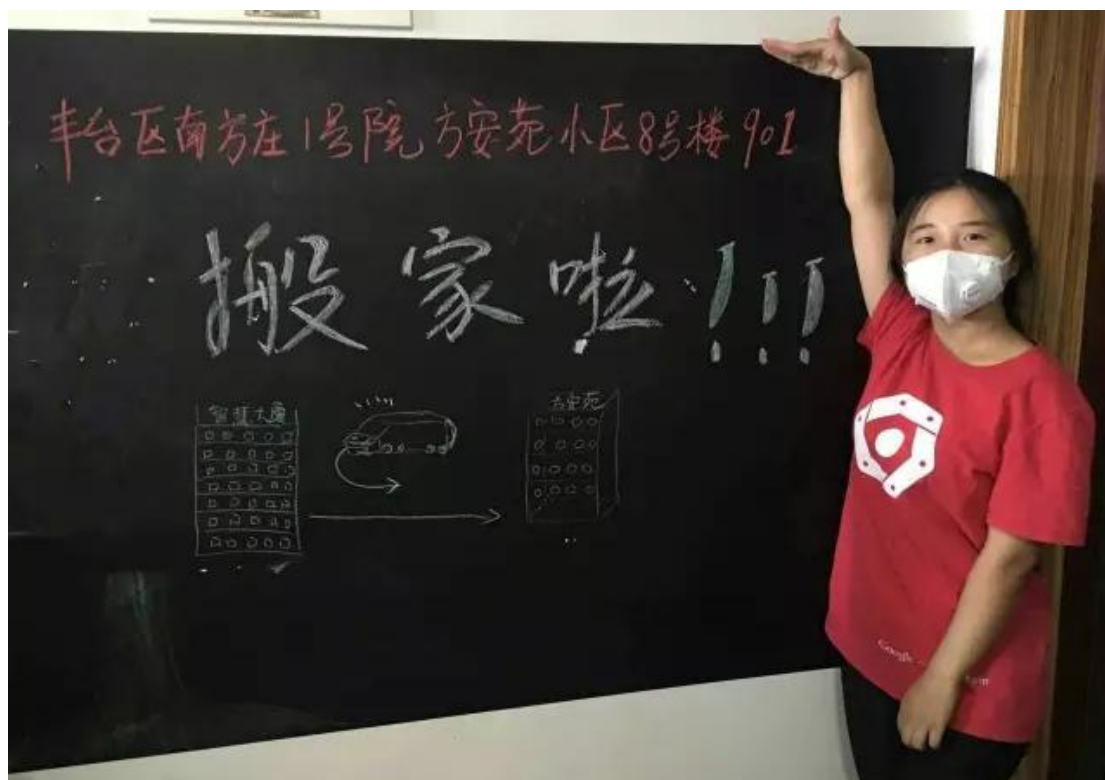 丰台区南方庄1号院方安苑小区8号楼901
搬家啦!!!
智旺大厦
方安苑
Google